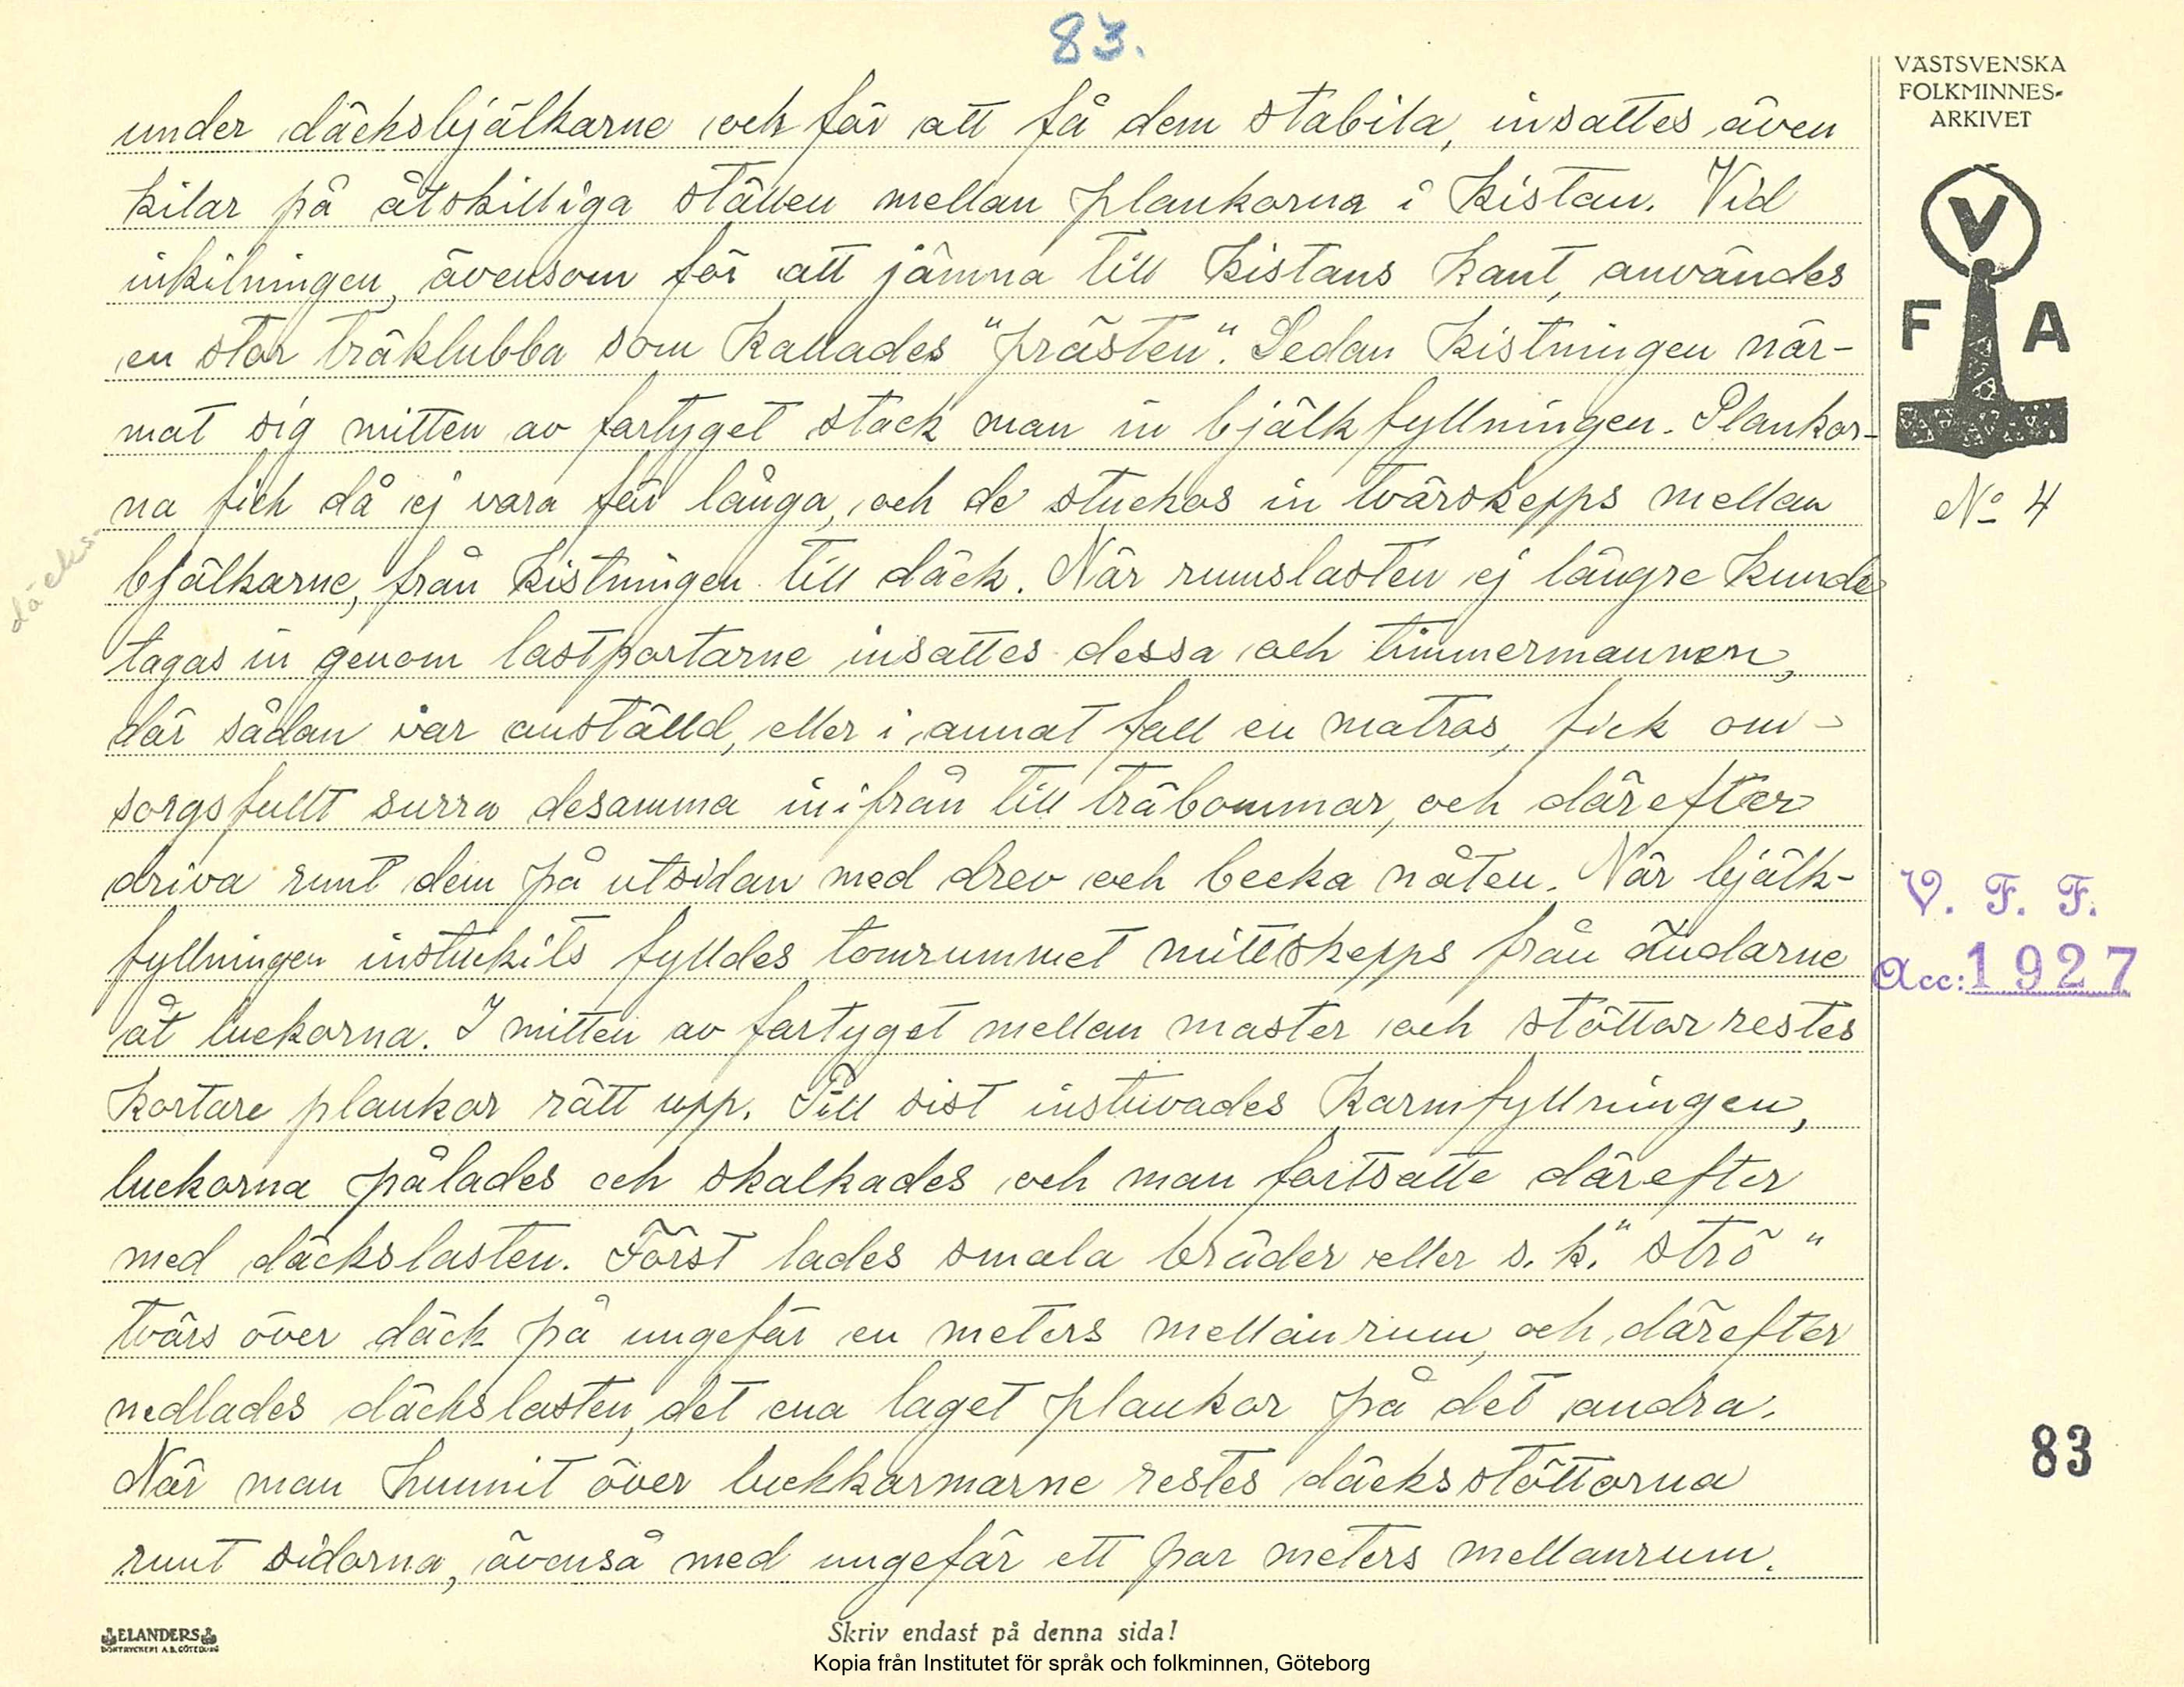 83.
VÄSTSVENSKA
FOLKMINNES-
ARKIVET
V
F A
No 4
under däcksbjälkarne och för att få dem stabila, insattes även
kilar på åtskilliga ställen mellan plankorna i kistan. Vid
inkilningen, ävensom för att jämna till kistans kant, användes
en stor träklubba som kallades "prästen". Sedan kistningen när-
mat sig mitten av fartyget stack man in bjälkfyllningen. Plankor-
na fick då ej vara för långa, och de stuckos in tvärskepps mellan
däcks-
bjälkarne, från kistningen till däck. När rumslasten ej längre kunde
tagas in genom lastportarne insattes dessa och timmermannen,
där sådan var anställd, eller i annat fall en matros, fick om-
sorgsfullt surra desamma inifrån till träbommar, och därefter
driva runt dem på utsidan med drev och becka nåten. När bjälk-
fyllningen instuckits fylldes tomrummet mittskepps från ändarne
åt luckorna. I mitten av fartyget mellan master och stöttor restes
kortare plankor rätt upp. Till sist instuvades karmfyllningen,
luckorna pålades och skalkades och man fortsatte därefter
med däckslasten. Först lades smala bräder eller s.k. "strö"
tvärs över däck på ungefär en meters mellanrum, och därefter
nedlades däckslasten, det ena laget plankor på det andra.
När man hunnit över luckkarmarne restes däcksstöttorna
runt sidorna, ävenså med ungefär ett par meters mellanrum.
V. F. F.
Acc: 1927
83
ELANDERS
BOKTRYCKERI A.B. GÖTEBORG
Skriv endast på denna sida!
Kopia från Institutet för språk och folkminnen, Göteborg